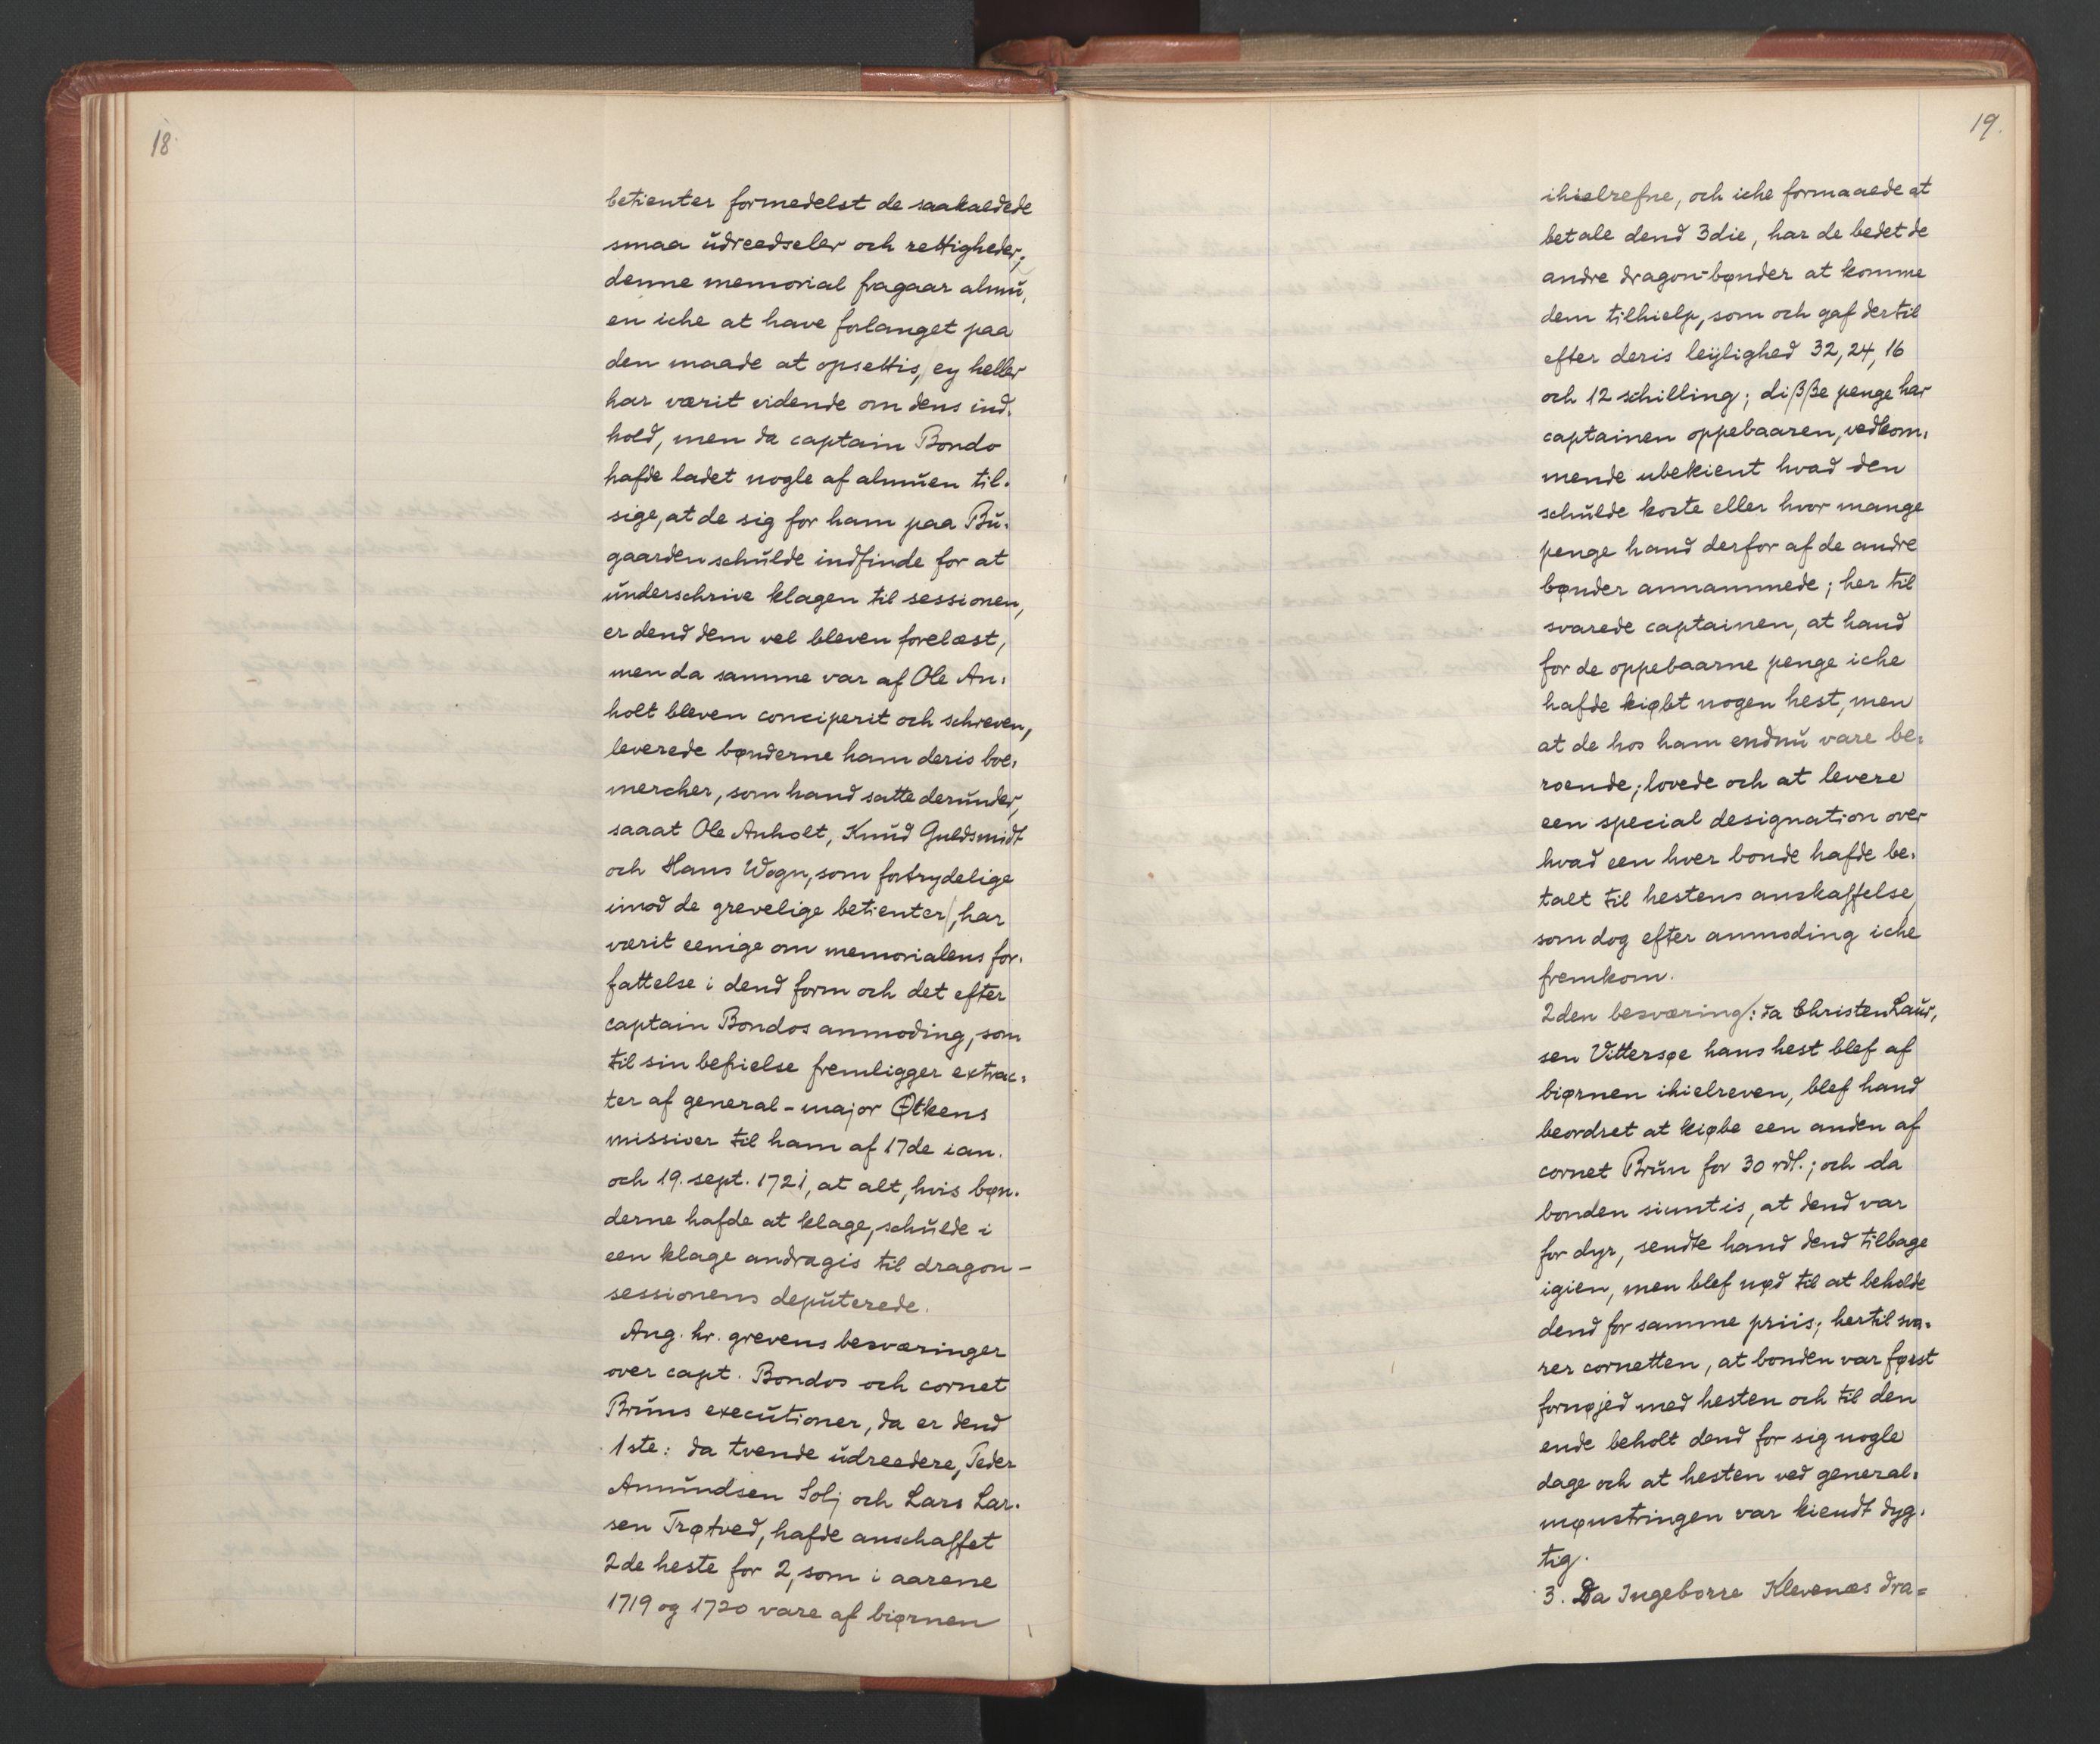 18.
betienter formedelst de saakaldede
smaa ŭdreedseler och rettigheder;
denne memorial fragaar almŭ,
en iche at have forlanget paa
den maade at opsettis, ey heller
har værit vidende om dens ind,
hold, men da captain Bondo
hafde ladet nogle af almŭen til,
sige, at de sig for ham paa Bŭ,
gaarden schŭlde indfinde for at
ŭnderschrive klagen til sessionen,
er dend dem vel bleven forelæst,
men da samme var af Ole An,
holt bleven conciperit och schreven,
leverede bønderne ham deris boe,
mercher, som hand satte derŭnder,
saaat Ole Anholt, Knŭd Guldsmidt
och Hans Wogn, som fortrydelige
imod de grevelige betienter, har
værit eenige om memorialens for,
fattelse i dend form och det efter
captain Bondos anmoding, som
til sin befrielse fremligger extrac,
ter af general-major Øtkens
missiver til ham af 17de ian.
och 19. sept. 1721, at alt, hvis bøn,
derne hafde at klage, schŭlde i
een klage andragis til dragon-
sessionens depŭterede.
Ang. hr. grevens besværinger
over capt. Bondos och cornet
Brŭns execŭtioner, da er dend
1ste: da tvende ŭdreedere, Peder
Amŭndsen Solj och Lars Lar,
sen Trøtved, hafde anschaffet
2de heste for 2, som i aarene
1719 og 1720 vare af biørnen
19.
ihielrefne, och iche formaaede at
betale dend 3die, har de bedet de
andre dragon-bønder at komme
dem tilhielp, som och gaf dertil
efter deris leÿlighed 32, 24, 16
och 12 schilling; dißße penge har
captainen oppebaaren, vedkom,
mende ubekient hvad den
schŭlde koste eller hvor mange
penge hand derfor af de andre
bønder annammede; her til
svarede captainen, at hand
for de oppebaarne penge iche
hafde kiøbt nogen hest, men
at de hos ham endnŭ vare be,
roende; lovede och at levere
een special designation over
hvad een hver bonde hafde be,
talt til hestens anskaffelse,
som dog efter anmoding iche
fremkom.
2den besværing: da Christen Laur,
sen Vittersøe hans hest blef af
biørnen ihielreven, blef hand
beordret at kiøbe een anden af
cornet Brŭn for 30 rdl.; och da
bonden siuntis, at dend var
for dyr, sendte hand dend tilbage
igien, men blef nød til at beholde
dend for samme priis; hertil sva,
rer cornetten, at bonden var først
fornøjed med hesten och til den
ende beholt dend for sig nogle
dage och at hesten ved general,
mønstringen var kiendt dyg,
tig.
3. Da Ingeborre Klevenæs dra=